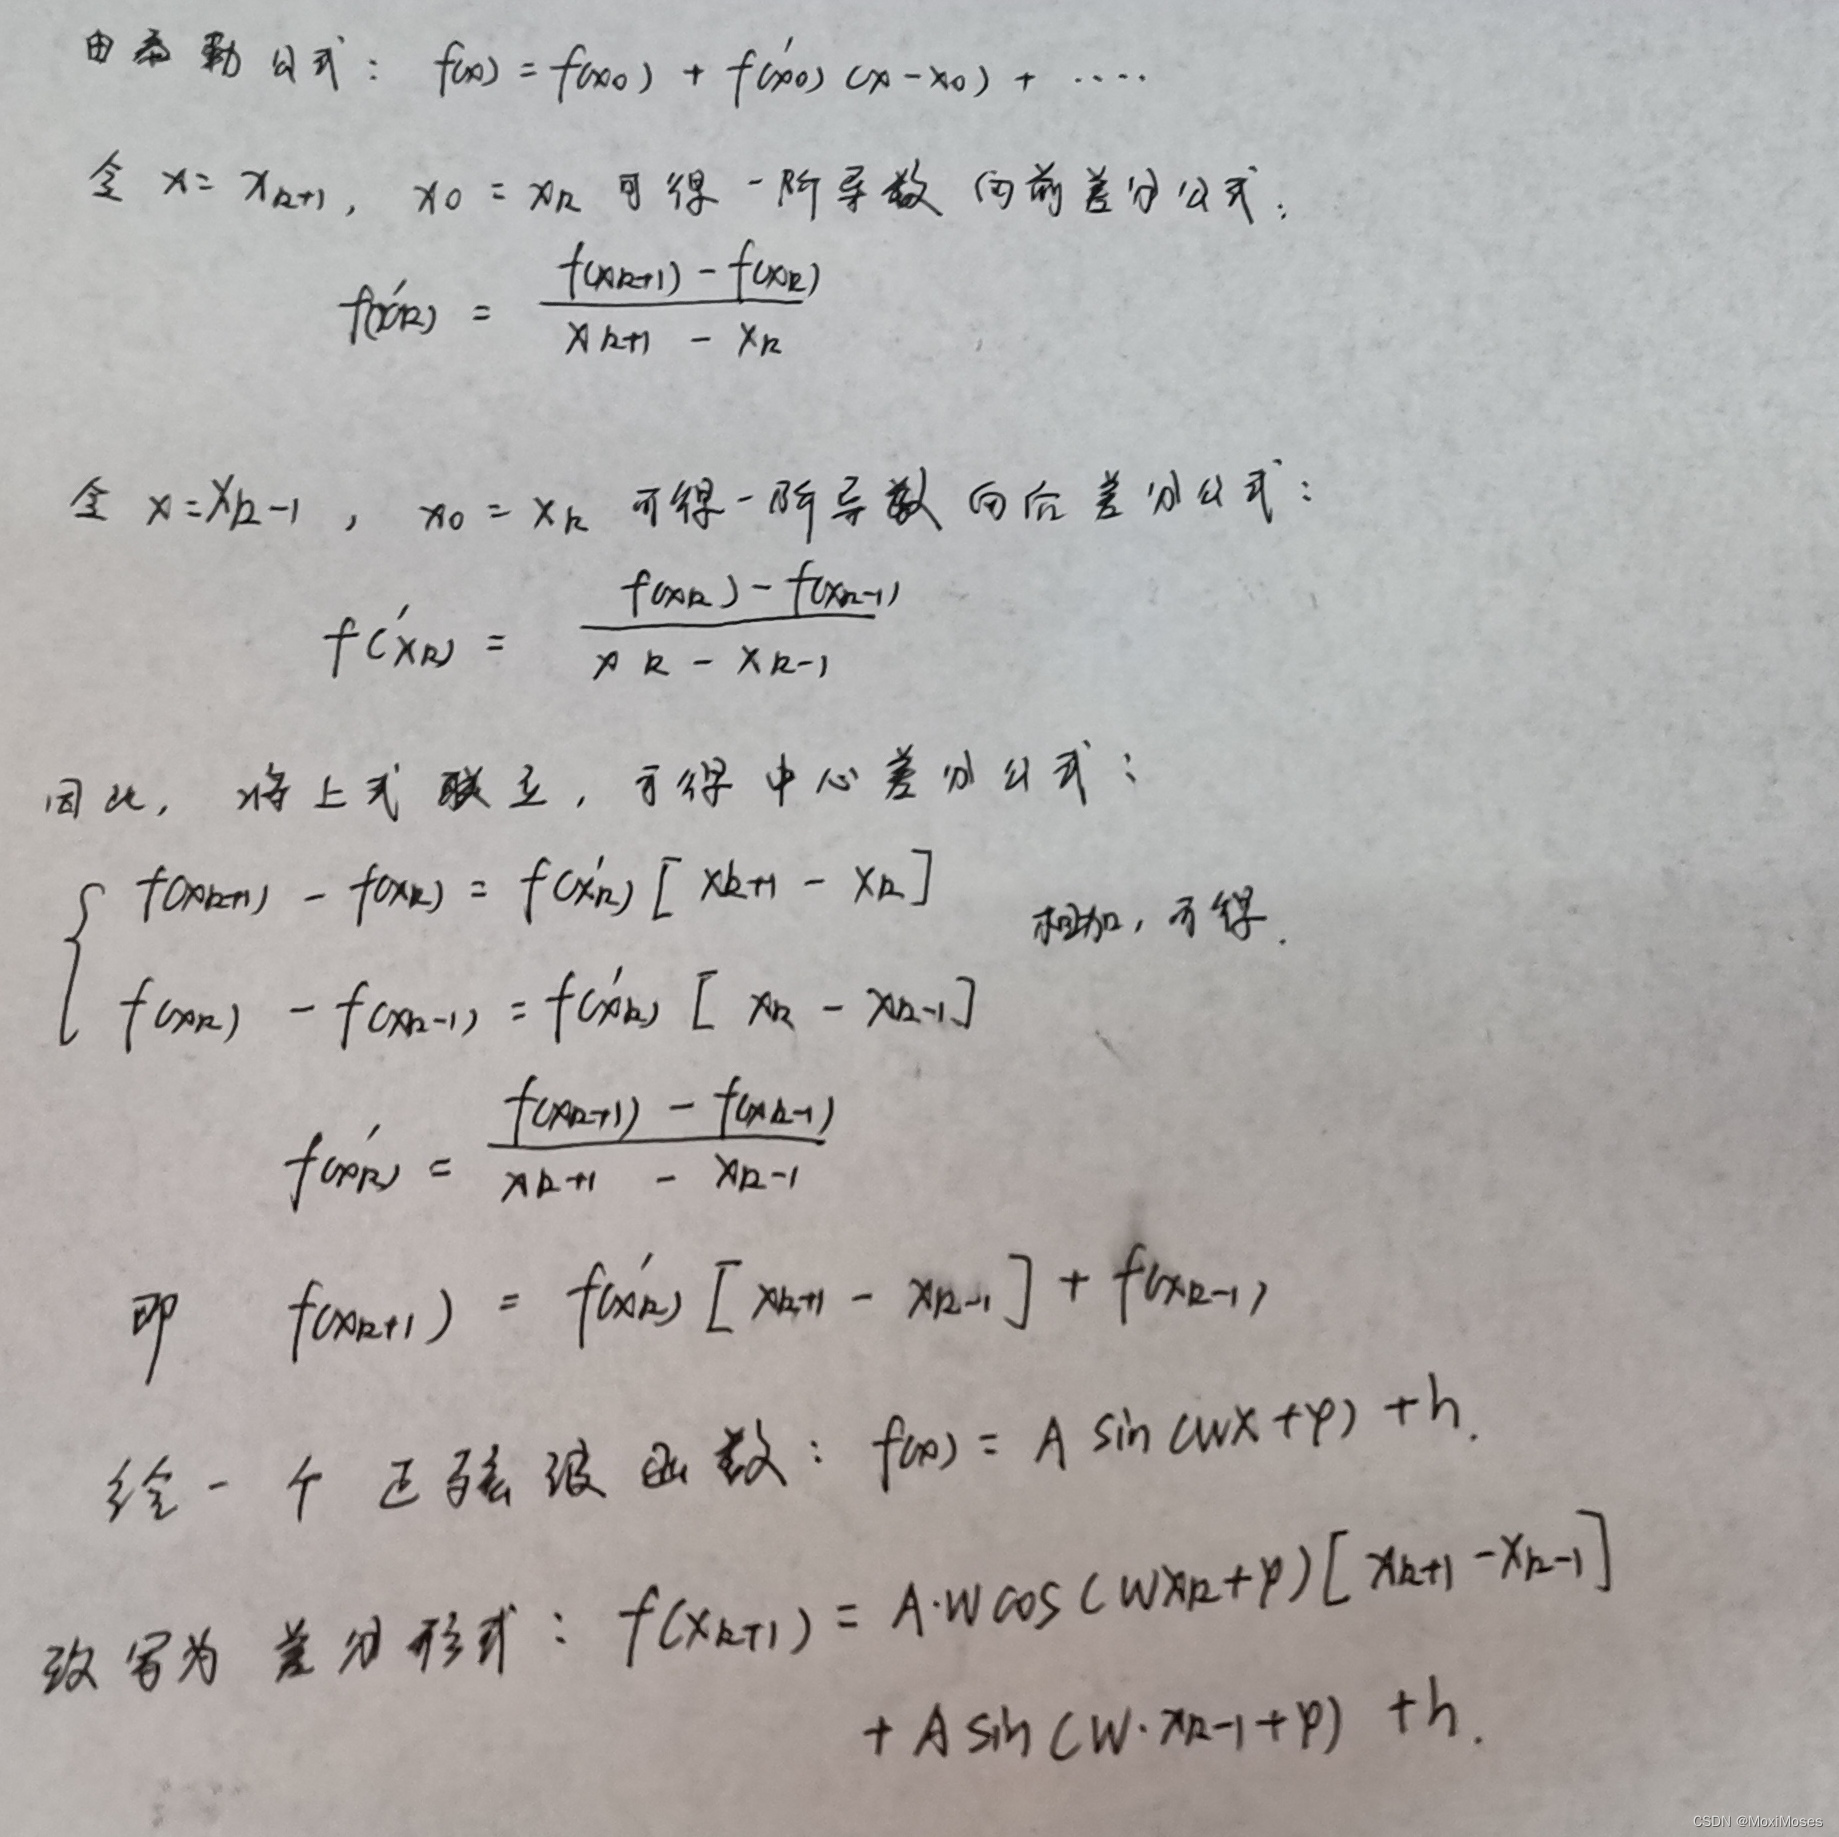 由泰勒公式: f(x) = f(x0) + f'(x0) (x-x0) + ....
令 x = xk+1, x0 = xk 可得一阶导数向前差分公式:
f'(xk) = f(xk+1) - f(xk) / xk+1 - xk
令 x = xk-1, x0 = xk 可得一阶导数向后差分公式:
f'(xk) = f(xk) - f(xk-1) / xk - xk-1
因此, 将上式联立, 可得中心差分公式:
{ f(xk+1) - f(xk) = f'(xk) [ xk+1 - xk ]
相加, 可得.
f(xk) - f(xk-1) = f'(xk) [ xk - xk-1 ]
f'(xk) = f(xk+1) - f(xk-1) / xk+1 - xk-1
即 f(xk+1) = f'(xk) [ xk+1 - xk-1 ] + f(xk-1)
给一个正弦波函数: f(x) = A sin(wx+φ) + h.
改写为差分形式: f(xk+1) = A·w cos(wxk+φ) [ xk+1 - xk-1 ]
+ A sin(w·xk-1+φ) + h.
CSDN @MoxiMoses